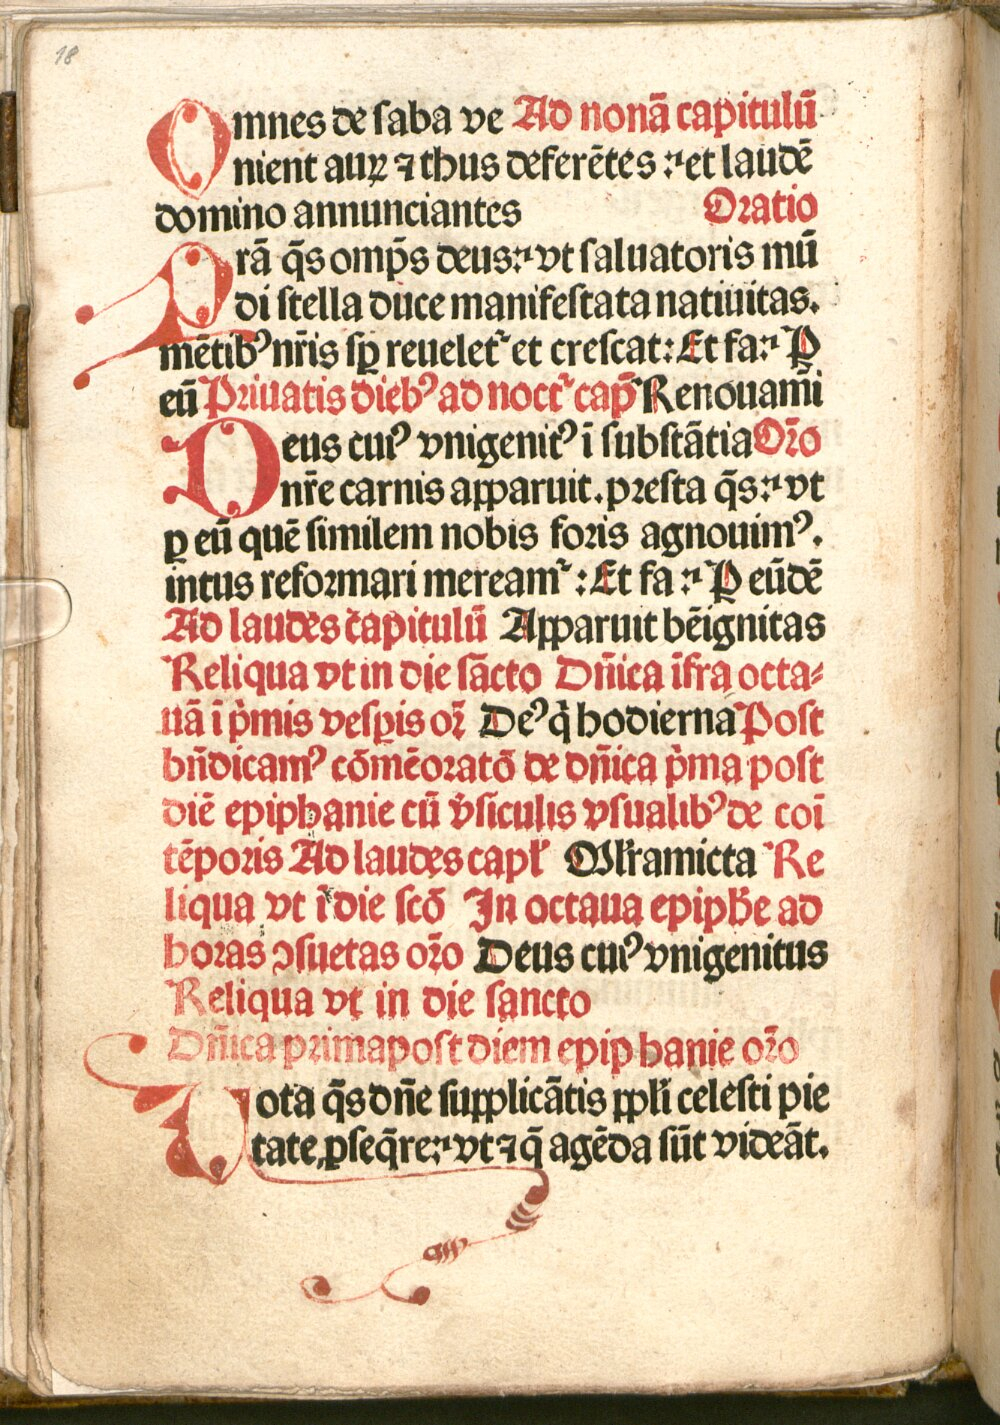 18
Omnes de saba ve Ad nonā capitulū
nient auꝝ ⁊ thus deferētes : et laudē
domino annunciantes Oratio
Prā q̄s omp̄s deus: vt saluatoris mū
di stella duce manifestata natiuitas.
mētibꝰ nr̄is sꝑ reueletᷣ et crescat: Et fa: P̲
eū Priuatis diebꝰ ad noctᷣ cap̄ Renouam̄i
Deus cuiꝰ vnigenitꝰ ī substātia Or̄o
nr̄e carnis apparuit. presta q̄s: vt
ꝑ eū quē similem nobis foris agnouimꝰ.
intus reformari mereamᷣ: Et fa: Ꝑ eūdē
Ad laudes capitulū Apparuit bēignitas
Reliqua vt in die sācto Dn̄ica īfra octa-
uā ī p̄mis vesꝑis or̄ Deꝰ q̄ hodierna Post
bn̄dicamꝰ cōmēoratō de dn̄ica p̄ma post
diē epiphanie cū v̄siculis vsualibꝰ de coī
tēporis Ad laudes capl̄ Dn̄s
liqua vt ī die scō In octaua epiph̄e ad
horas ꝯsuetas or̄o Deus cuiꝰ vnigenitus
Reliqua vt in die sancto
Dn̄ica prima post diem epiphanie or̄o
Uota q̄s dn̄e supplicātis ppl̄i celesti pie
tate ꝓseq̄re: vt ⁊ q̄ agēda sūt videāt.